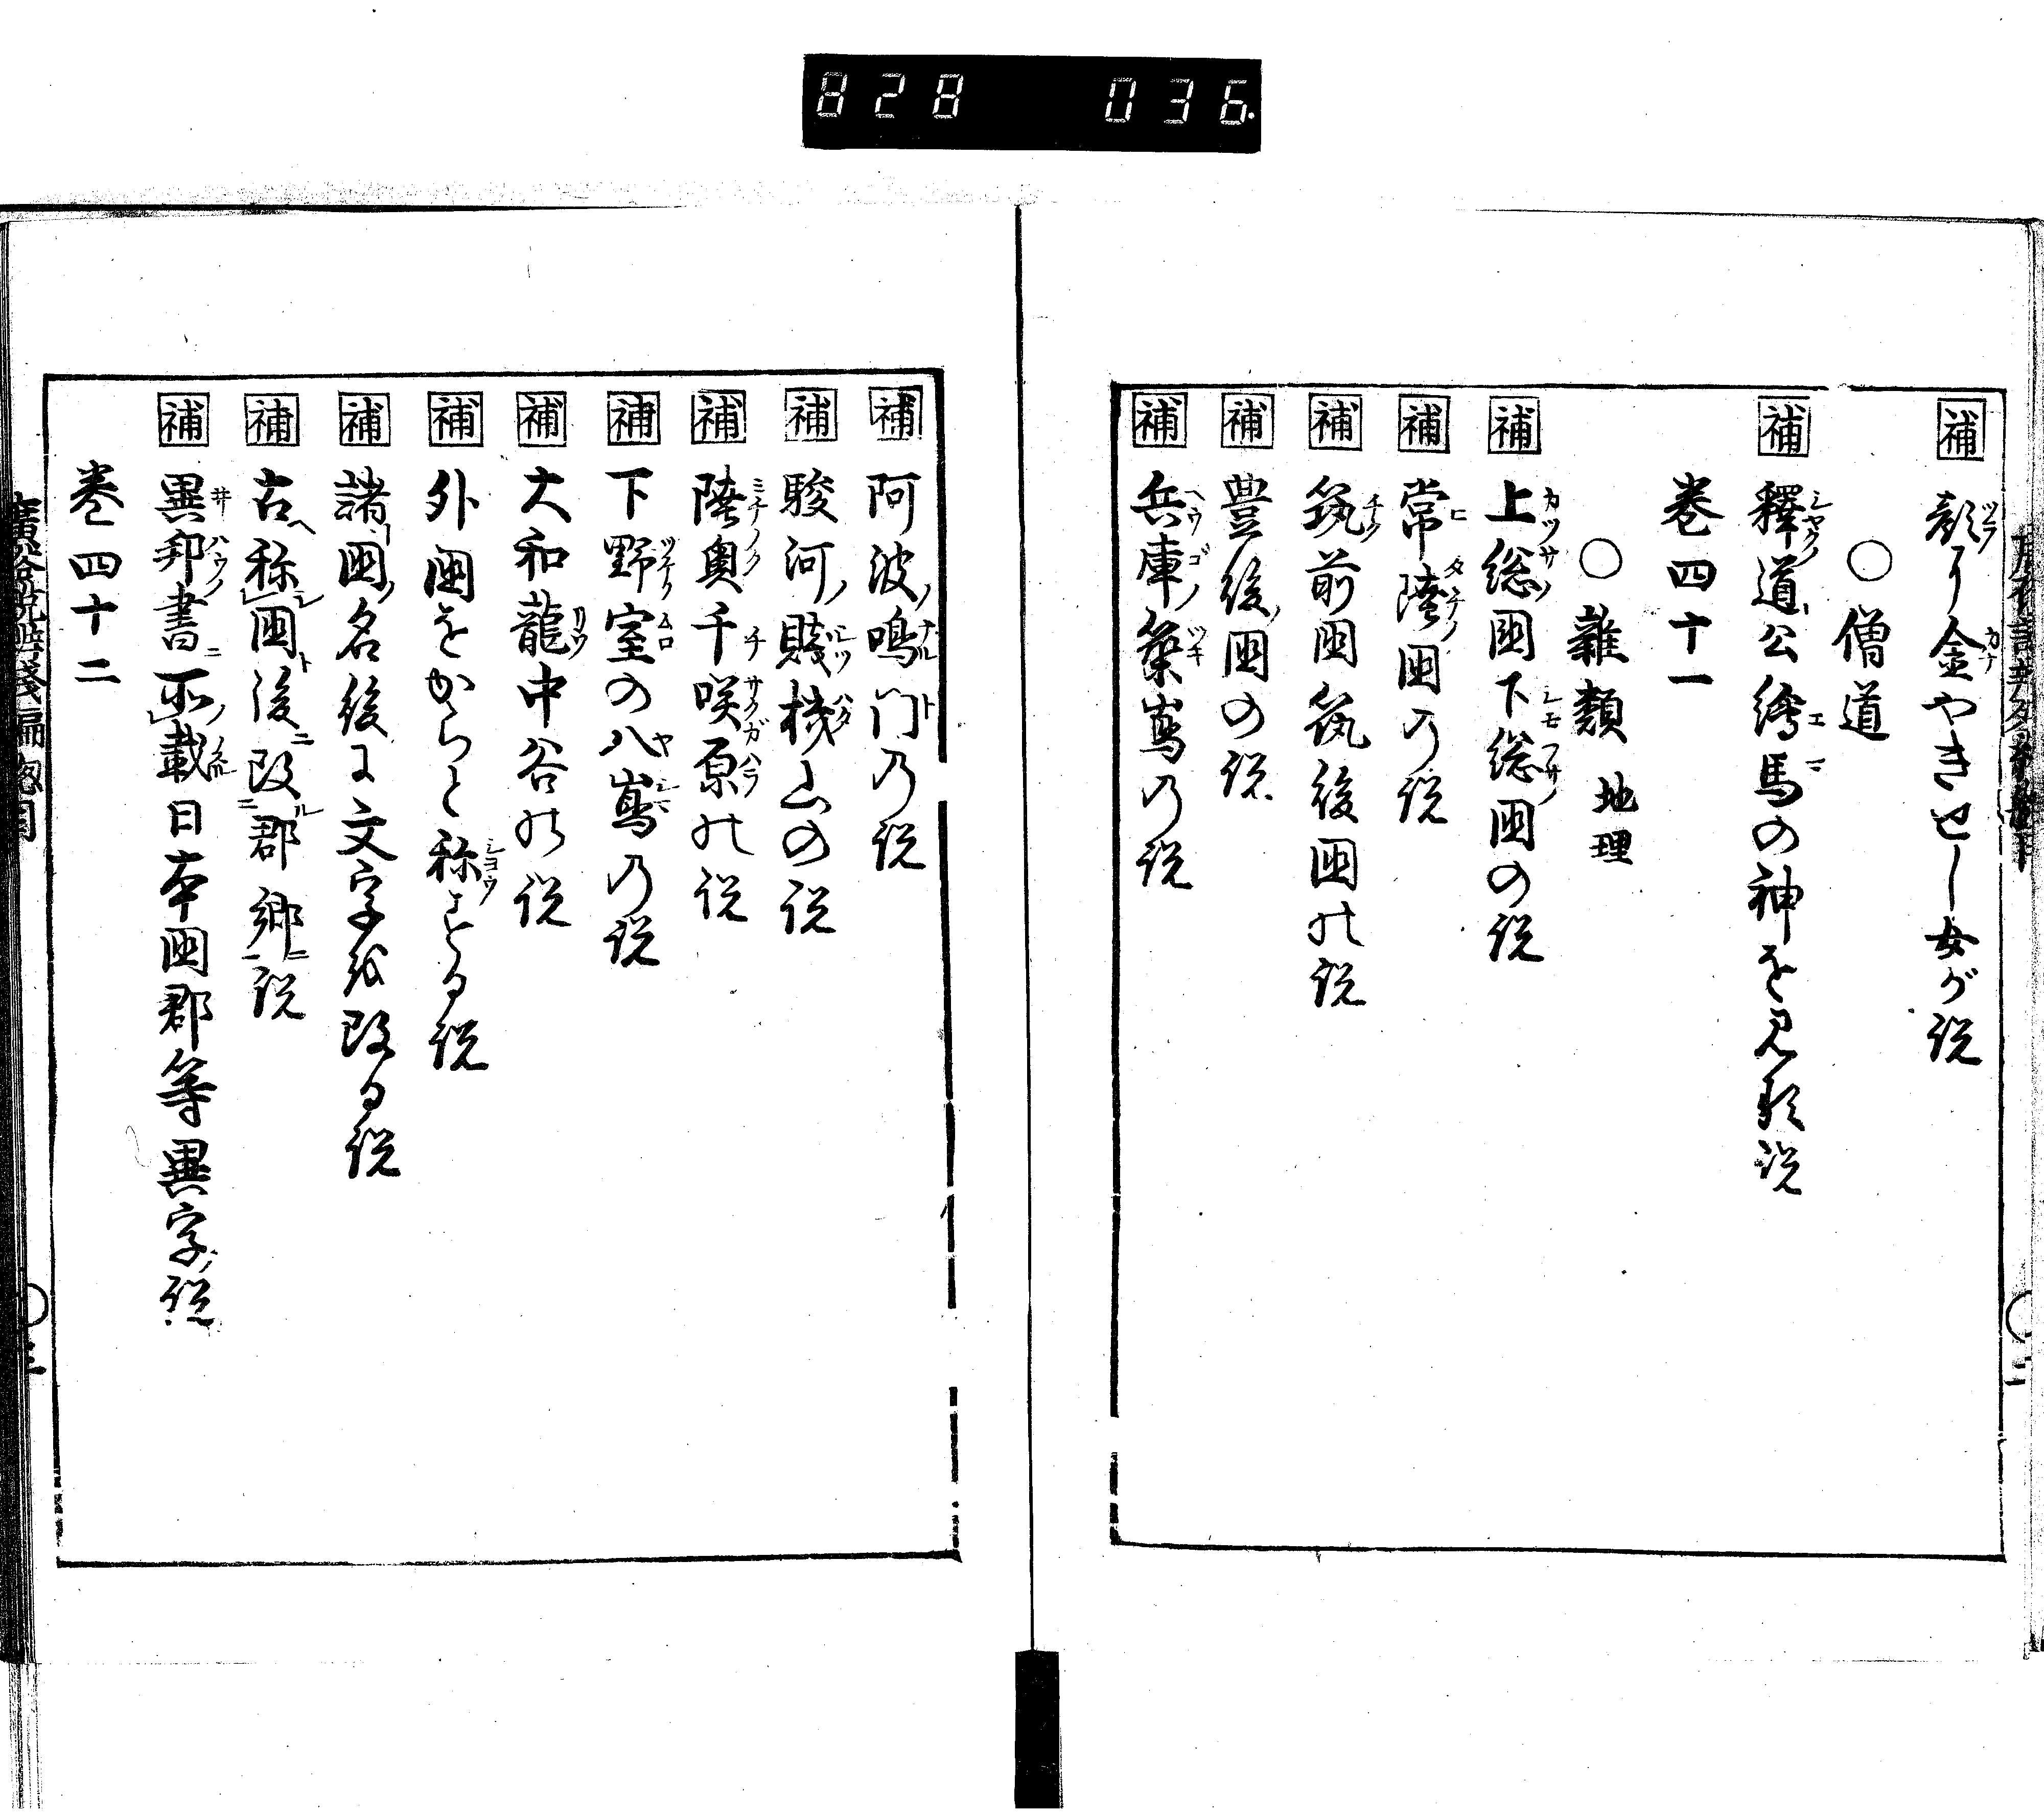 828 036
補 顔に金やきせし女が説
○僧道
補 釋道公繪馬の神を見る説
巻四十一
○雜類 地理
補 上総国下総国の説
補 常陸国の説
補 筑前国筑後国の説
補 豊後国の説
補 兵庫築嶌の説
補 阿波鳴門の説
補 駿河賤機山の説
補 陸奥千咲原の説
補 下野室の八嶌の説
補 大和龍中谷の説
補 外国をからと称する説
補 諸国名後に文字を改る説
補 古称国後改郡郷説
補 異邦書所載日本国郡等異字説
巻四十二